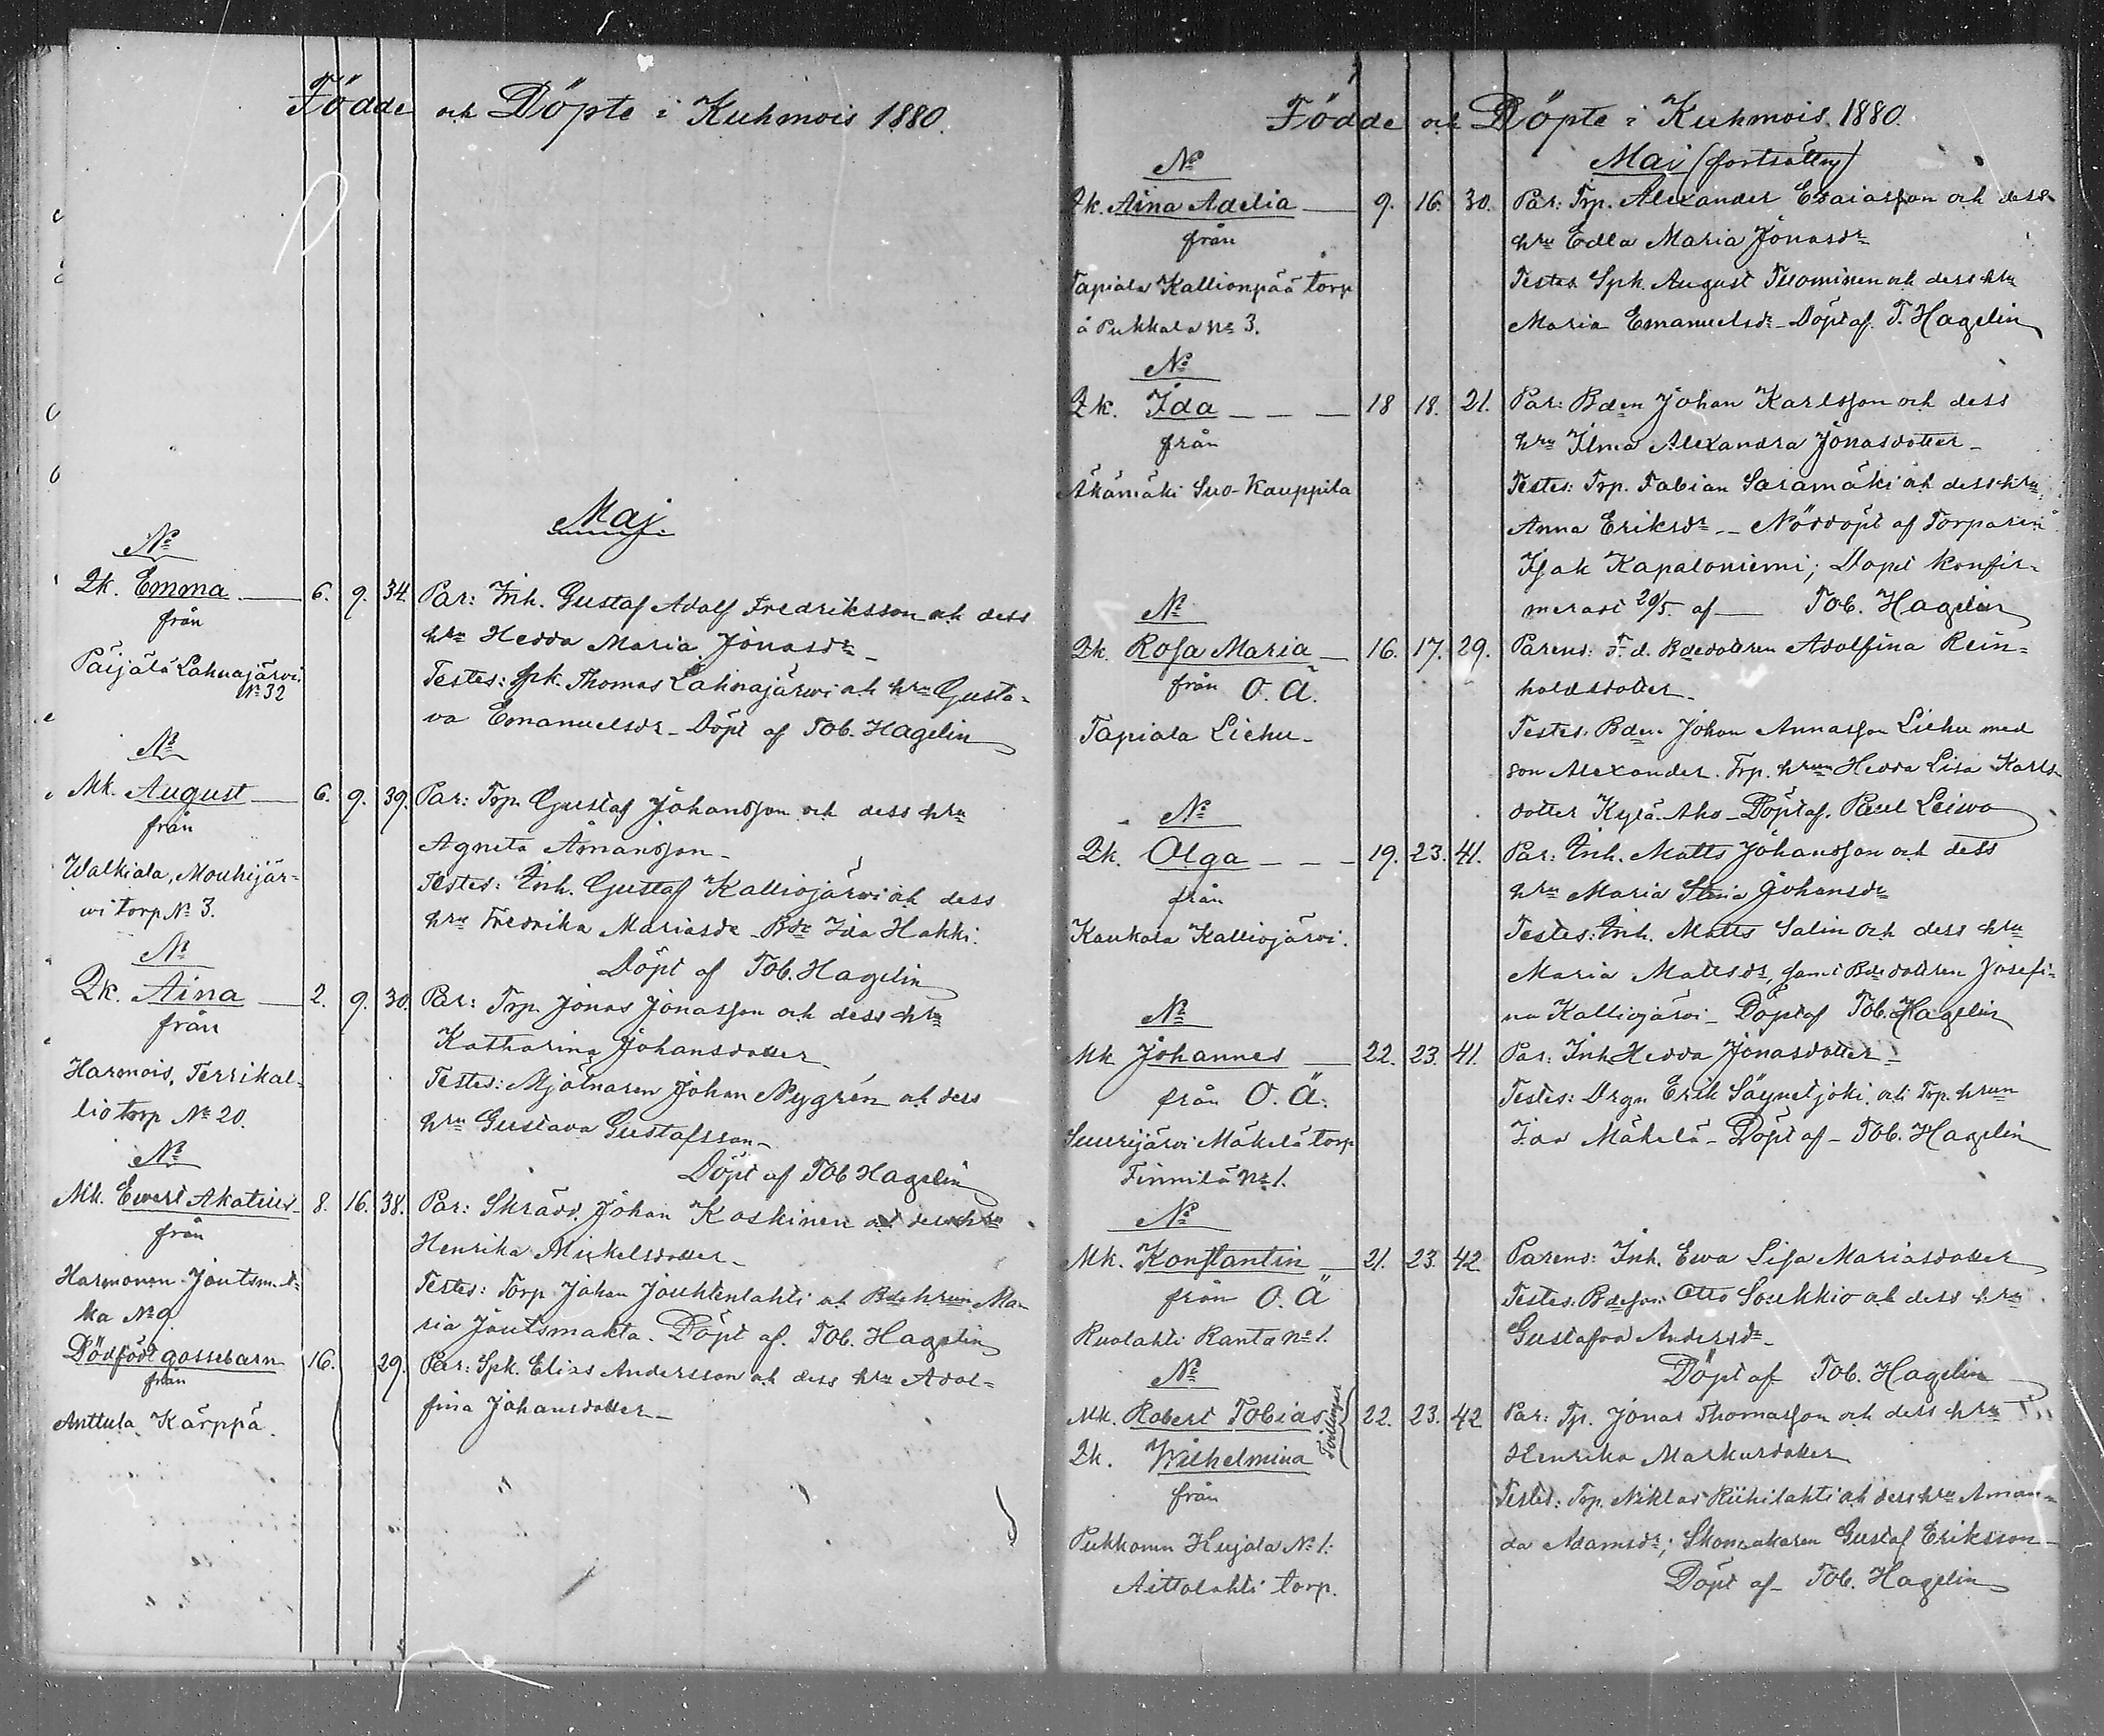 Födde och Döpte i Kuhmois 1880.
Maj.
No
Qk. Emma — 6. 9. 34. Par: Inh. Gustaf Adolf Fredriksson och dess
från hru Hedda Maria Jonasdr
Päijälä Lahnajärvi Testes: Spk. Thomas Lahnajärwi och hru Gusta-
No 32 va Emanuelsdr – Döpt af Tob. Hagelin
No
Mk. August — 6. 9. 39. Par: Trp. Gustaf Johansson och dess hru
från Agneta Amansson –
Walkiala, Mouhijär- Testes: Inh. Gustaf Kalliojärvi och dess
wi torp No 3. hru Fredrika Mariasdr Bde Ida Hakki.
Döpt af Tob. Hagelin
No
Qk. Aina — 2. 9. 30. Par: Trp. Jonas Jonasson och dess hru
från Katharina Johansdotter
Harmois, Terrikal- Testes: Mjölnaren Johan Nygrén och dess
lio torp No 20. hru Gustava Gustafsson –
Döpt af Tob Hagelin
No
Mk. Ewert Akatius – 8. 16. 38. Par: Skrädd. Johan Koskinen och dess hru
från Henrika Mickelsdotter –
Harmonen Joutsm. Testes: Torp. Johan Jouhtenlahti och Bdehrun Ma-
ka No 9 ria Joutsmakta. Döpt af. Tob. Hagelin
Dödfödt gossebarn 16. 29. Par: Spk. Elias Andersson och dess hru Adol-
från fina Johansdotter –
Anttula Kärppä.
Födde och Döpte i Kuhmois. 1880.
Maj (fortsättng)
No
Qk. Aina Adelia — 9. 16. 30. Par: Trp. Alexander Esaiasson och dess
från hru Edla Maria Jonasdr
Tapiala Kallionpää torp Testes Spk. August Tuominen och dess hru
å Pukkala No 3. Maria Emanuelsdr – Döpt af T. Hagelin
No
Qk. Ida — — — 18 18. 21. Par: Bden Johan Karlsson och dess
från hru Ilma Alexandra Jonasdotter –
Äkämäki Suo-Kauppila Testes: Trp. Fabian Saramäki och dess hru
Anna Eriksdr – Nöddöpt af Torparen
Isak Kapaloniemi; Dopet konfir-
merad 20/5 af — Tob. Hagelin
No
Qk. Rosa Maria — 16. 17. 29. Parens: F. d. Bdedotteren Adolfina Rein-
från O. Ä. holdsdotter –
Tapiala Liehu – Testes. Bden. Johan Annasson Liehu med
son Alexander. Trp. hrun Hedda Lisa Karls-
dotter Kylä-Aho – Döpt af. Paul Leiwo
No
Qk. Olga — — — 19. 23. 41. Par: Inh. Matts Johansson och dess
från hru Maria Stina Johansdr
Kaukola Kalliojärvi. Testes: Inh. Matts Salin och dess hru
Maria Mattsdr, samt Bdedotteren Josefi-
na Kalliojärvi – Döpt af Tob. Hagelin
No
Mk Johannes — 22. 23. 41. Par: Inh Hedda Jonasdotter –
från O. Ä. Testes: Drgn Erik Säynetjoki. och Trp. hrun
Suurijärvi Mäkelä torp Ida Mäkelä – Döpt af – Tob. Hagelin
Finnilä No 1.
No
Mk. Konstantin — 21. 23. 42 Parens: Inh. Ewa Lisa Mariasdotter
från O. Ä Testes. Bdeson Otto Soukkio och dess hru
Ruolahti Ranta No 1. Gustafva Andersdr –
Döpt af Tob. Hagelin
No
Mk. Robert Tobias Tvillingar 22. 23. 42 Par: Tp. Jonas Thomasson och dess hru
Qk. Wilhelmina Henrika Markusdotter
från Testes: Trp. Niklas Riihilahti och dess hru Aman-
Pukkonen Hujala No 1. da Adamsdr; Skomakaren Gustaf Eriksson –
Aittolahti torp. Döpt af – Tob. Hagelin